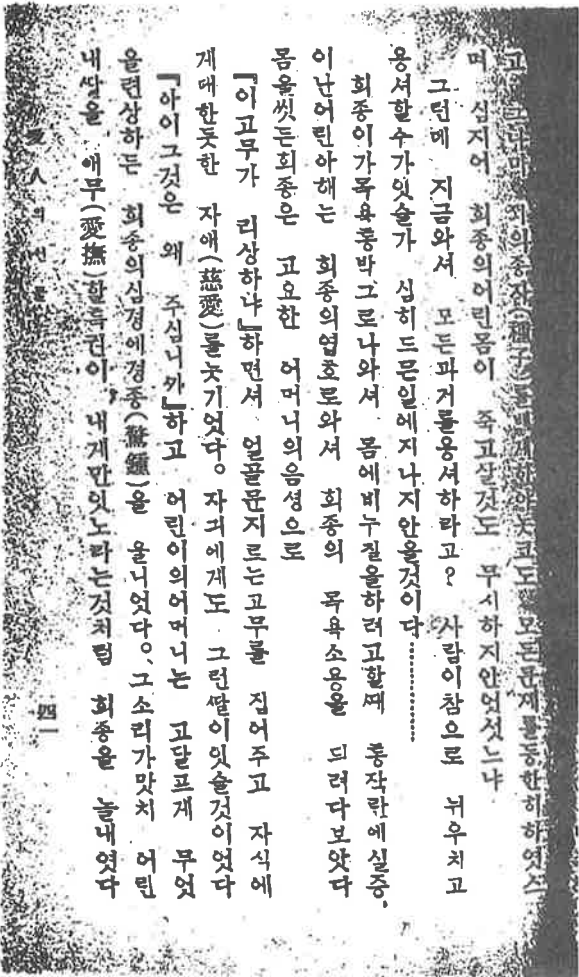 고 그나마 죄의종자(種子)를 하야놋코도 모든문제를등한히하엿스
며 심지어 희종의어린몸이 죽고살것도 무시하지안엇섯느냐
그런데 지금와셔 모든과거를용셔하라고? 사람이참으로 뉘우치고
용셔할수가잇슬가 심히드믄일에지나지안을것이다…………
희종이가목욕통박그로나와셔 몸에비누질을하려고할때 통작란에실증,
이난어린아해는 희종의엽흐로와셔 희종의 목욕소용을 듸려다보앗다
몸을씻든희종은 고요한 어머니의음셩으로
『이고무가 리상하냐』하면셔 얼골문지르는고무를 집어주고 자식에
게대한듯한 자애(慈愛)를늣기엇다。자긔에게도 그런딸이잇슬것이엇다
『아이그것은 왜 주십니까』하고 어린이의어머니는 고달프게 무엇
을련상하든 희종의심경에경종(警鐘)을 울니엇다。그소리가맛치 어린
내딸을 애무(愛撫)할특권이, 내게만잇노라는것처럼 희종을 놀내엿다
人의 선물
四一